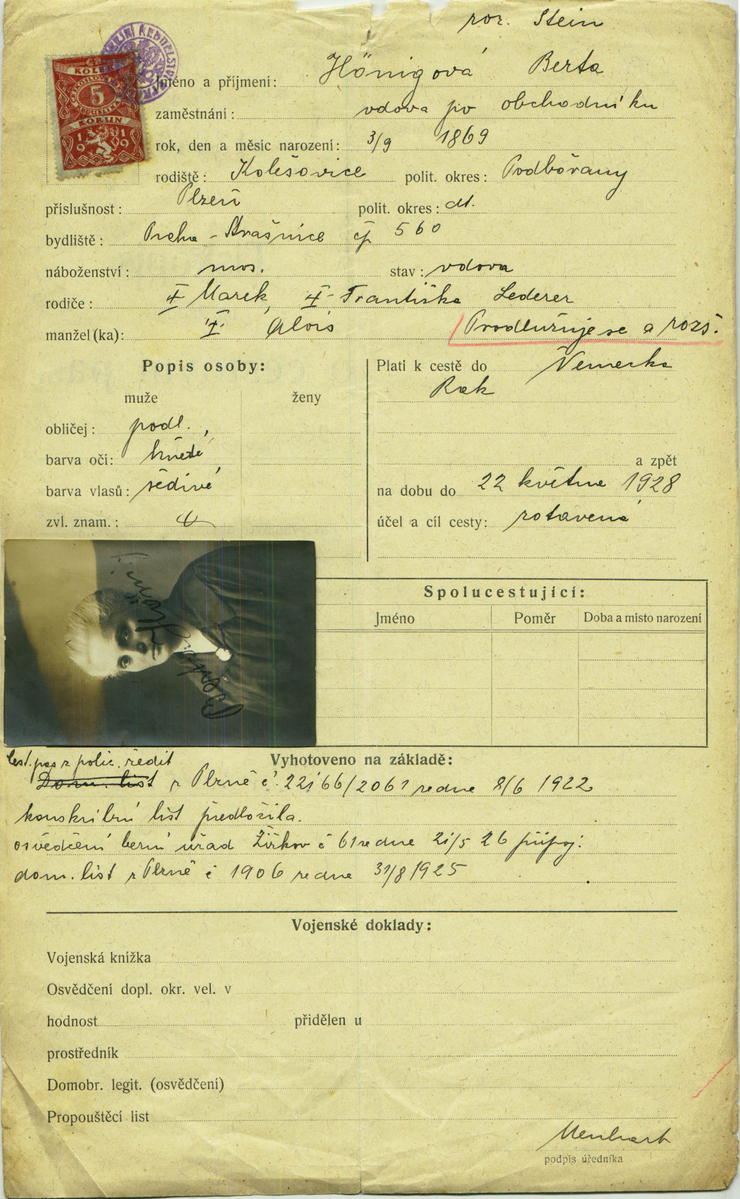 roz. Stein
Jméno a příjmení: Hönigová Berta
zaměstnání: vdova po obchodníku
rok, den a měsíc narození: 3/9 1869
rodiště: Kolešovice polit. okres: Podbořany
příslušnost: Plzeň polit. okres: dt.
bydliště: Praha-Strašnice čp 560
náboženství: mos. stav: vdova
rodiče: Marek, Františka Lederer
manžel(ka): Alois Prodlužuje se a rozš.
Popis osoby: Platí k cestě do Německa
muže ženy Rak
obličej: podl.,
barva očí: hnědé a zpět
barva vlasů: šedivé na dobu do 22 května 1928
zvl. znam.: účel a cíl cesty: zotavená
KOLEK
5
KORUN
1919
Spolucestující:
Jméno Poměr Doba a místo narození
Vyhotoveno na základě:
cest. pas z polic. ředit
Dom. list v Plzně č. 22166/2061 ze dne 8/6 1922
konskribní list předložila.
osvědčení berní úřad Žižkov č 61 ze dne 21/5 26 připoj.
dom. list v Plzně č 1906 ze dne 31/8 1925
Vojenské doklady:
Vojenská knížka
Osvědčení dopl. okr. vel. v
hodnost přidělen u
prostředník
Domobr. legit. (osvědčení)
Propouštěcí list
podpis úředníka